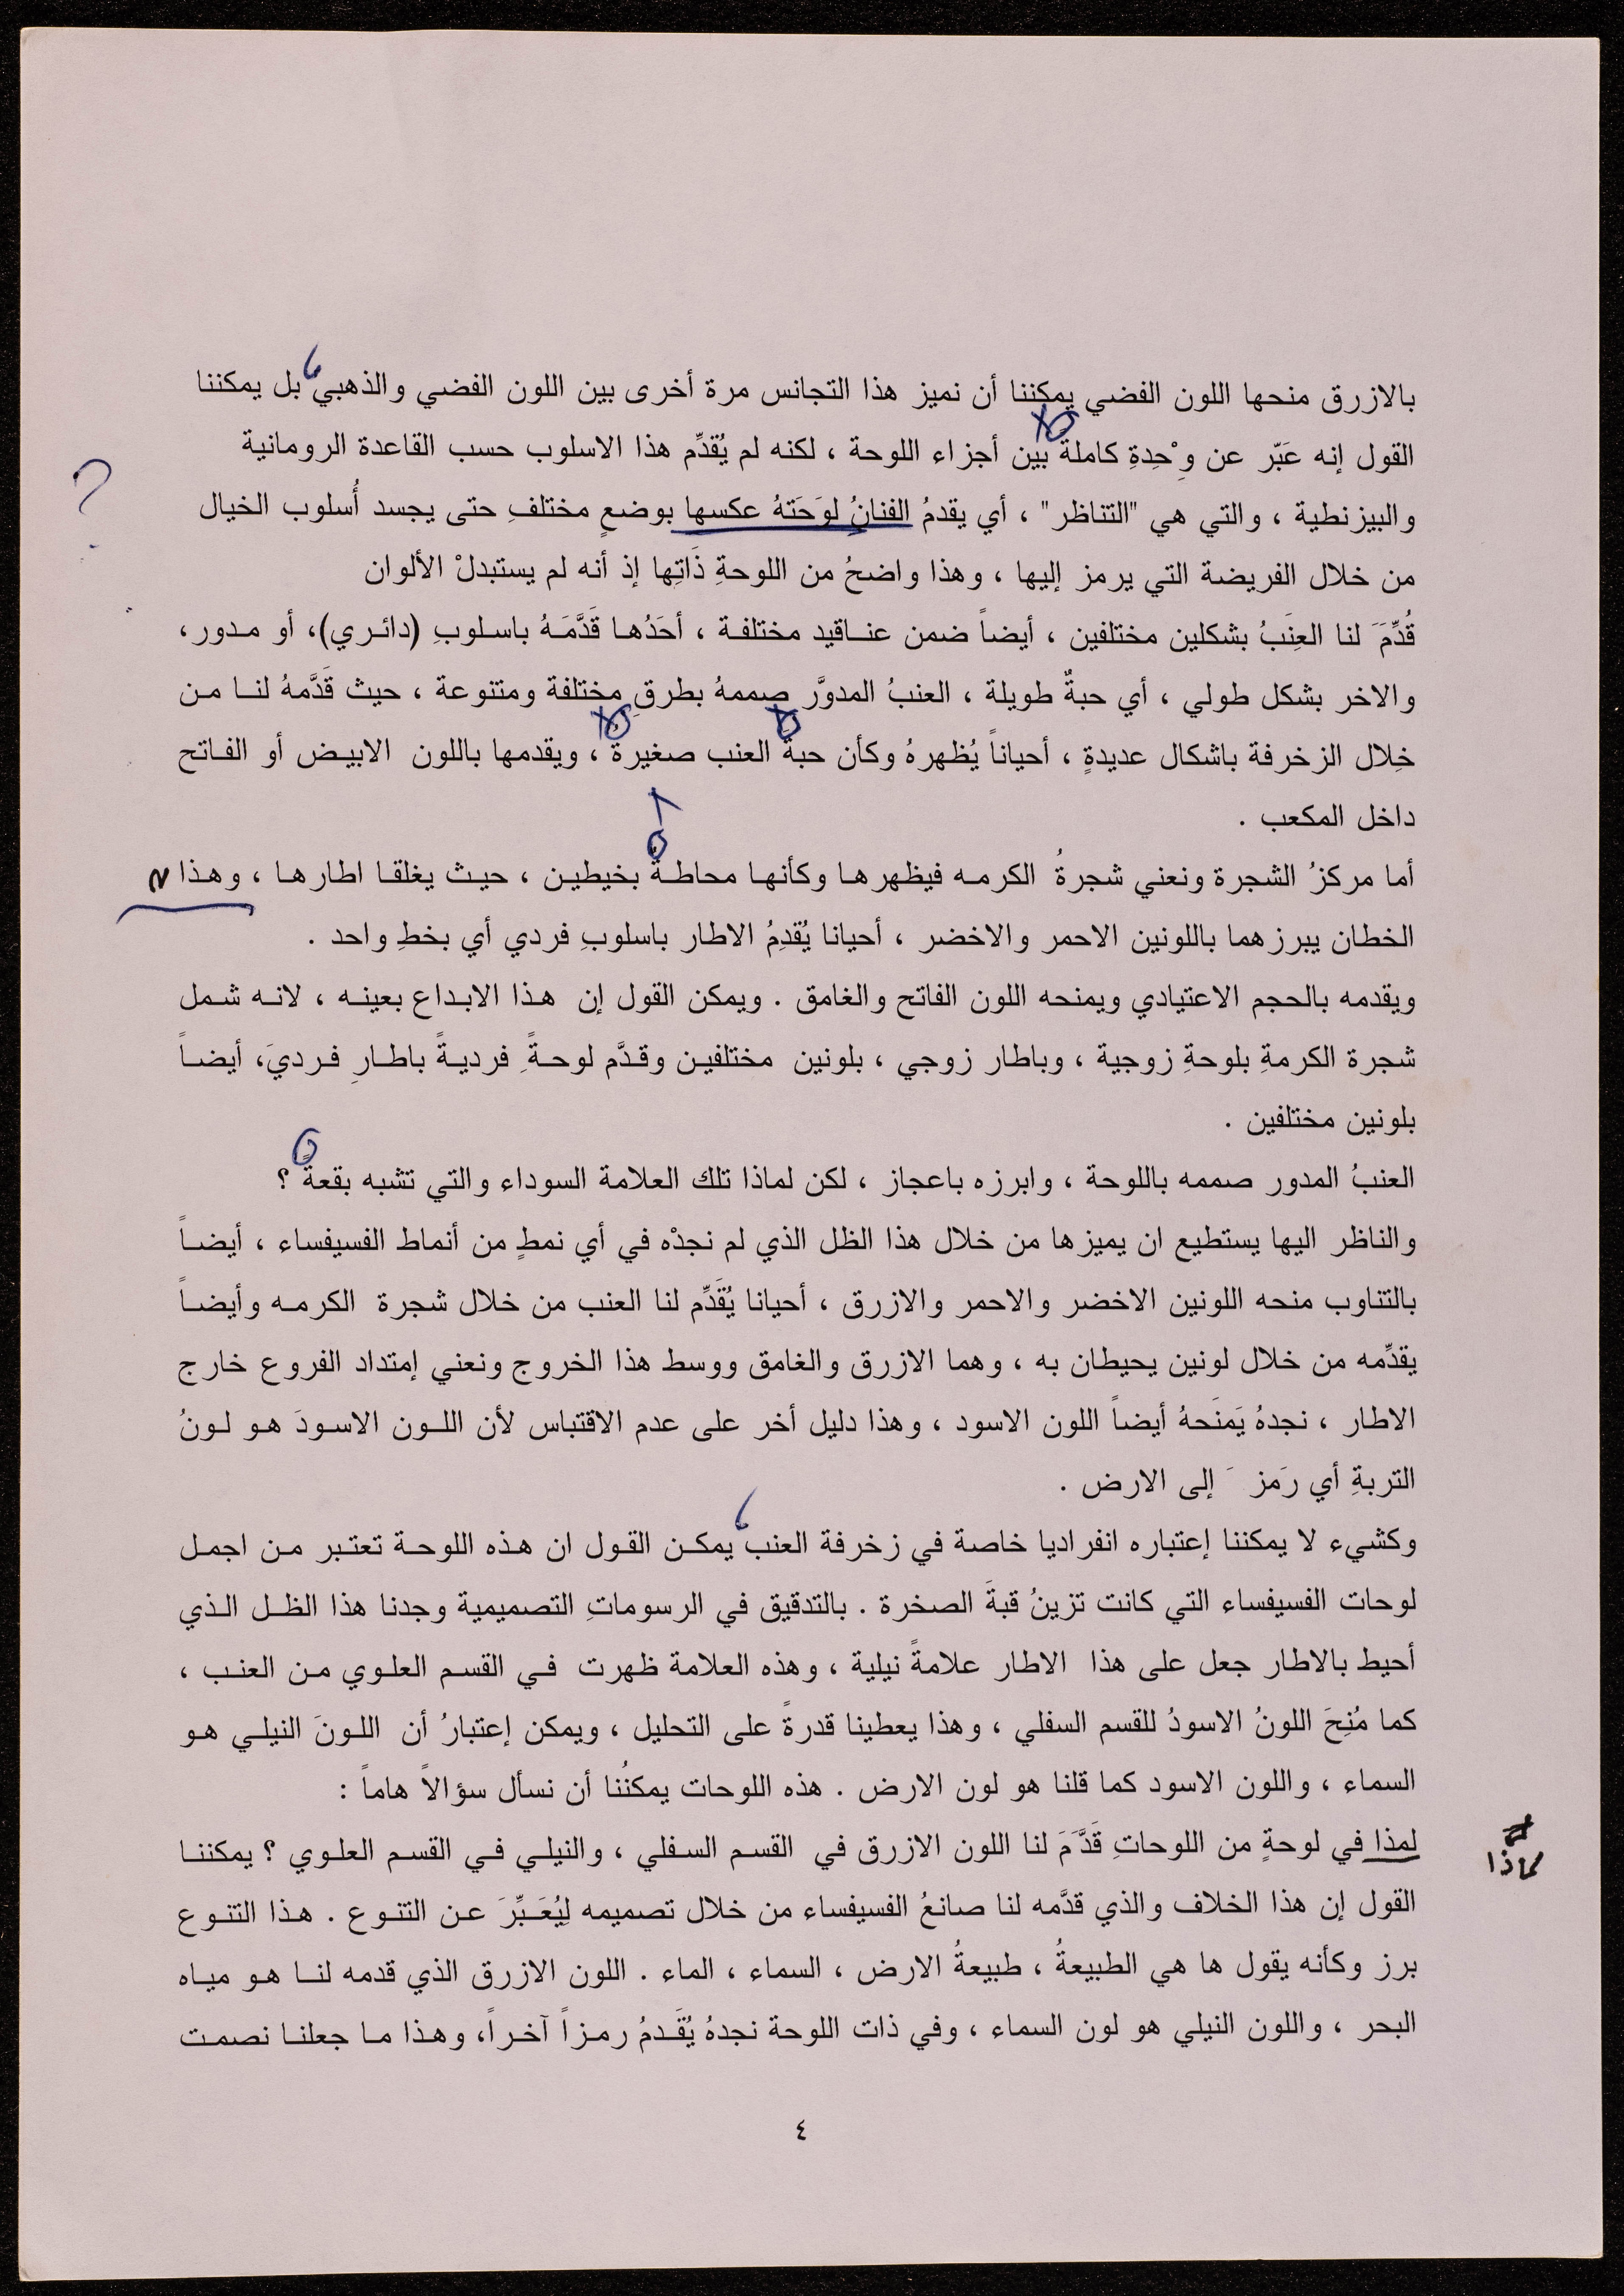 بالازرق منحها اللون الفضي يمكننا أن نميز هذا التجانس مرة أخرى بين اللون الفضي والذهبي ، بل يمكننا
القول إنه عَبّر عن وِحْدِةِ كاملة بين أجزاء اللوحة ، لكنه لم يُقدِّم هذا الاسلوب حسب القاعدة الرومانية
والبيزنطية ، والتي هي "التناظر" ، أي يقدمُ الفنانُ لوَحَتهُ عكسها بوضعٍ مختلفِ حتى يجسد أُسلوب الخيال
?
من خلال الفريضة التي يرمز إليها ، وهذا واضحُ من اللوحةِ ذَاتِها إذ أنه لم يستبدلْ الألوان
قُدِّمَ لنا العِنَبُ بشكلين مختلفين ، أيضاً ضمن عناقيد مختلفة ، أحَدُها قَدَّمَهُ باسلوبِ (دائري)، أو مدور،
والاخر بشكل طولي ، أي حبةٌ طويلة ، العنبُ المدوَّر صممهُ بطرقِ مختلفة ومتنوعة ، حيث قَدَّمهُ لنا من
خِلال الزخرفة باشكال عديدةٍ ، أحياناً يُظهرهُ وكأن حبة العنب صغيرة ، ويقدمها باللون الابيض أو الفاتح
داخل المكعب .
أما مركزُ الشجرة ونعني شجرةُ الكرمه فيظهرها وكأنها محاطةٌ بخيطين ، حيث يغلقا اطارها ، وهذا ن
الخطان يبرزهما باللونين الاحمر والاخضر ، أحيانا يُقدِمُ الاطار باسلوبِ فردي أي بخطِ واحد .
ويقدمه بالحجم الاعتيادي ويمنحه اللون الفاتح والغامق . ويمكن القول إن هذا الابداع بعينه ، لانه شمل
شجرة الكرمةِ بلوحةِ زوجية ، وباطار زوجي ، بلونين مختلفين وقدَّم لوحةً فرديةً باطارِ فرديَ، أيضاً
بلونين مختلفين .
العنبُ المدور صممه باللوحة ، وابرزه باعجاز ، لكن لماذا تلك العلامة السوداء والتي تشبه بقعةً ؟
والناظر اليها يستطيع ان يميزها من خلال هذا الظل الذي لم نجدْه في أي نمطٍ من أنماط الفسيفساء ، أيضاً
بالتناوب منحه اللونين الاخضر والاحمر والازرق ، أحيانا يُقَدِّم لنا العنب من خلال شجرة الكرمه وأيضاً
يقدِّمه من خلال لونين يحيطان به ، وهما الازرق والغامق ووسط هذا الخروج ونعني إمتداد الفروع خارج
الاطار ، نجدهُ يَمنَحهُ أيضاً اللون الاسود ، وهذا دليل أخر على عدم الاقتباس لأن اللون الاسودَ هو لونُ
التربةِ أي رَمز َ إلى الارض .
وكشيء لا يمكننا إعتباره انفراديا خاصة في زخرفة العنب ، يمكن القول ان هذه اللوحة تعتبر من اجمل
لوحات الفسيفساء التي كانت تزينُ قبةَ الصخرة . بالتدقيق في الرسوماتِ التصميمية وجدنا هذا الظل الذي
أحيط بالاطار جعل على هذا الاطار علامةً نيلية ، وهذه العلامة ظهرت في القسم العلوي من العنب ،
كما مُنِحَ اللونُ الاسودُ للقسم السفلي ، وهذا يعطينا قدرةً على التحليل ، ويمكن إعتبارُ أن اللونَ النيلي هو
السماء ، واللون الاسود كما قلنا هو لون الارض . هذه اللوحات يمكنُنا أن نسأل سؤالاً هاماً :
لمذا في لوحةٍ من اللوحاتِ قَدَّمَ لنا اللون الازرق في القسم السفلي ، والنيلي في القسم العلوي ؟ يمكننا
لماذا
القول إن هذا الخلاف والذي قدَّمه لنا صانعُ الفسيفساء من خلال تصميمه لِيُعَبِّرَ عن التنوع . هذا التنوع
برز وكأنه يقول ها هي الطبيعةُ ، طبيعةُ الارض ، السماء ، الماء . اللون الازرق الذي قدمه لنا هو مياه
البحر ، واللون النيلي هو لون السماء ، وفي ذات اللوحة نجدهُ يُقَدمُ رمزاً آخراً، وهذا ما جعلنا نصمت
٤